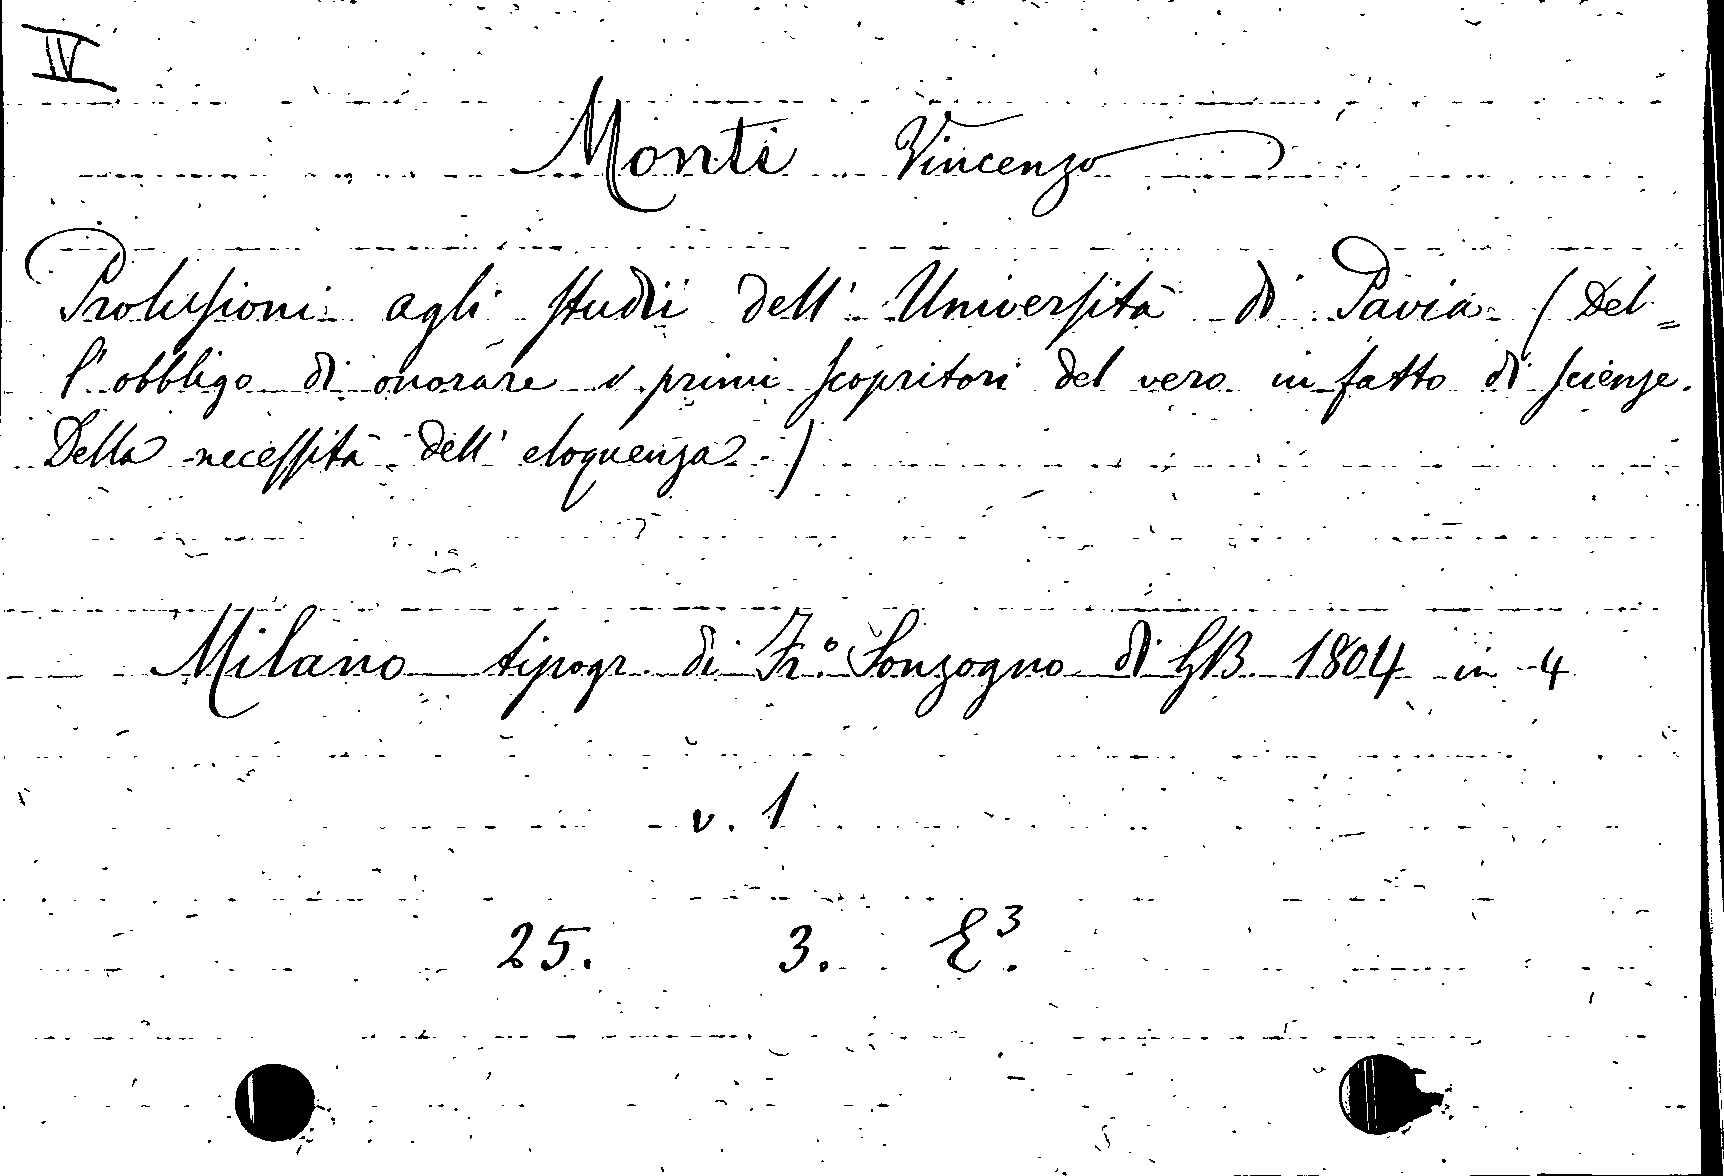 IV
Monti Vincenzo
Prolusioni agli studii dell' Università di Pavia (Del=
l'obbligo di onorare i primi scopritori del vero in fatto di scienze.
Della necessità dell' eloquenza)
Milano tipogr. di Fr.º Sonzogno di GB. 1804 in 4
v. 1
25. 3. E³.